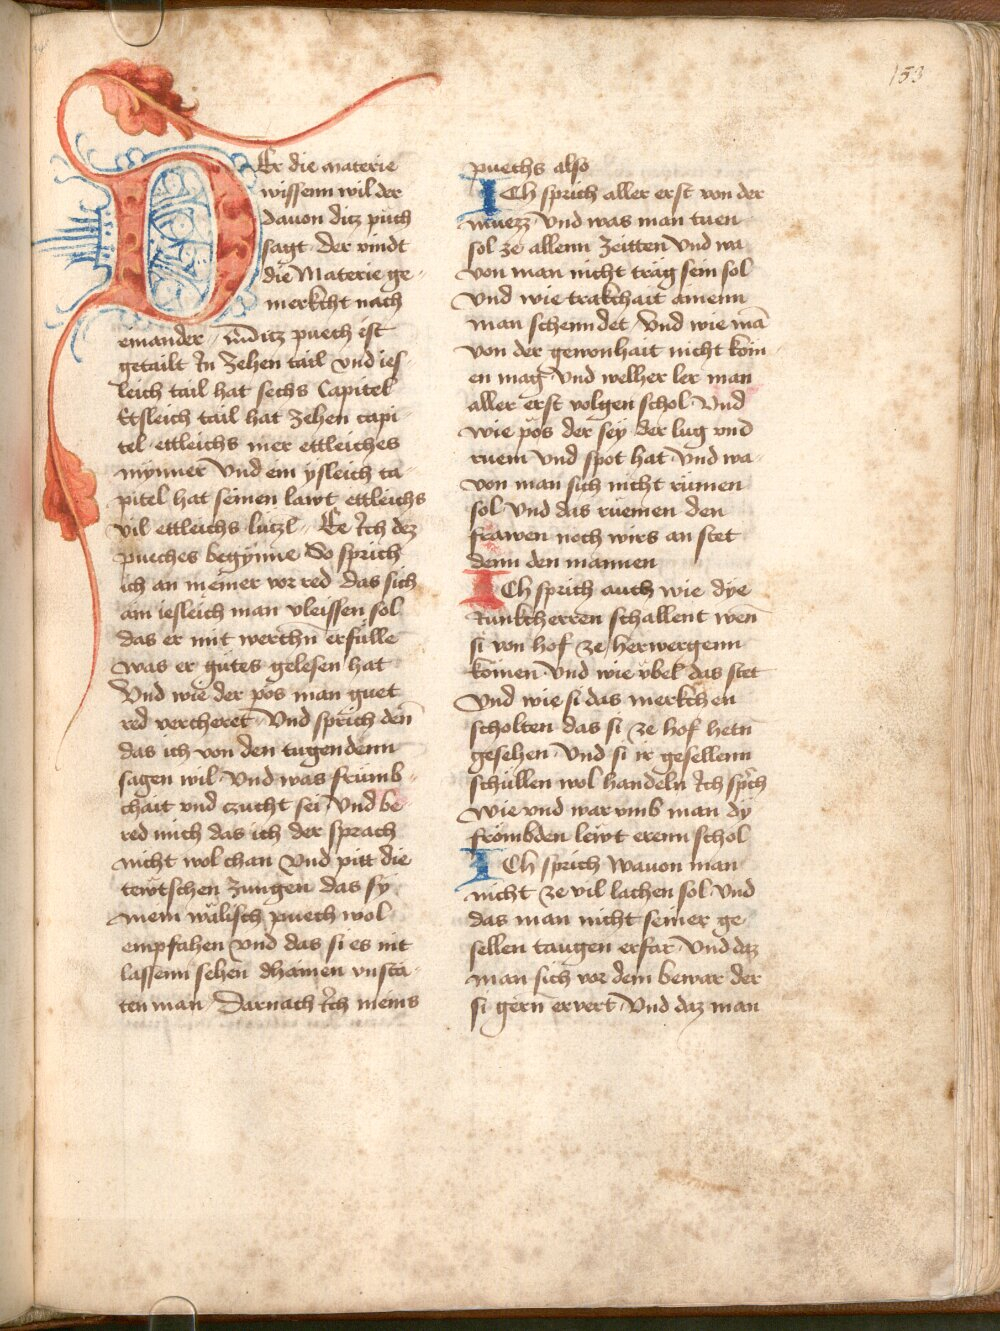 153
DEr die materie
wissenn wil der
dauon ditz puch
sagt der vindt
die Materie ge-
merkcht nach
einander ditz puech ist
getailt In Zehen tail vnd ies-
leich tail hat sechs Capitel
Etsleich tail hat Zehen capi-
tel ettleichs mer ettleiches
mynner Vnd ein ysleich ca-
pitel hat seinen lawt ettleichs
vil ettleichs lutzl Ee Ich dez
pueches begynne So sprich
ich an meiner vor red das sich
ain iesleich man vleissen sol
das er mit werchn erfulle
was er gutes gelesen hat
Vnd wie der pos man guet
red vercheret Vnd sprich den
das ich von den tugendenn
sagen wil Vnd was frumb-
chait vnd czucht sei Vnd be-
red mich das ich der sprach
nicht wol chan Vnd pitt die
tewtschen Zungen das sy
mein wälisch puech wol
empfahen vnd das si es nit
lassenn sehen dhainen vnstä-
ten man Darnach Ich meins
puechs also
ICh sprich aller erst von der
muezz Vnd was man tuen
sol ze allenn Zeitten Vnd wa
von man nicht träg sein sol
Vnd wie trakchait ainenn
man schenndet Vnd wie mā
von der gewonhait nicht kom-
en mag Vnd welher ler man
aller erst volgen schol Vnd
wie pos der sey der lug vnd
ruem Vnd spot hat Vnd wa-
von man sich nicht rumen
sol Vnd das ruemen den
frawen noch wirs an stet
denn den mannen
ICh sprich auch wie dye
Junkcherren schallent wen
si von hof ze herwergenn
komen Vnd wie vbel das stet
Vnd wie si das merkchen
scholten das si ze hof hetn
gesehen Vnd si ir gesellenn
schullen wol handeln Ich sprich
wie vnd war vmb man dy
frombden lewt erenn schol
ICh sprich Wauon man
nicht ze vil lachen sol Vnd
das man nicht seiner ge-
sellen taugen erfar Vnd daz
man sich vor dem bewar der
si gern ervert Vnd daz man